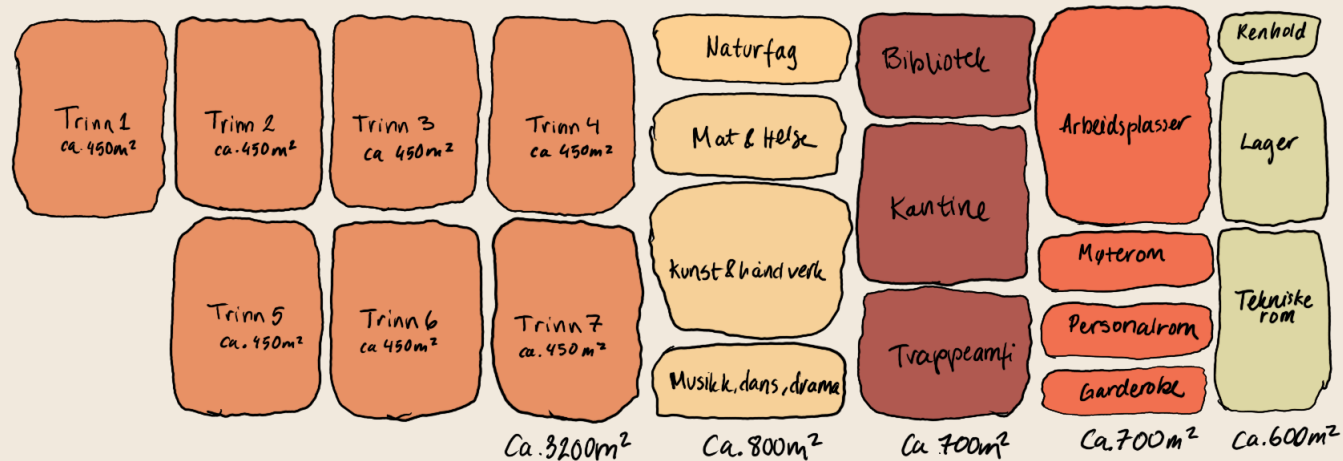 Trinn 1
ca. 450m²
Trinn 2
ca. 450m²
Trinn 3
ca 450m²
Trinn 4
ca 450m²
Trinn 5
ca. 450m²
Trinn 6
ca 450m²
Trinn 7
ca. 450m²
Ca. 3200m²
Naturfag
Mat & Helse
Kunst & håndverk
Musikk, dans, drama
Ca. 800m²
Bibliotek
Kantine
Trappeamfi
Ca. 700m²
Arbeidsplasser
Møterom
Personalrom
Garderobe
Ca. 700m²
Renhold
Lager
Tekniske
rom
Ca. 600m²